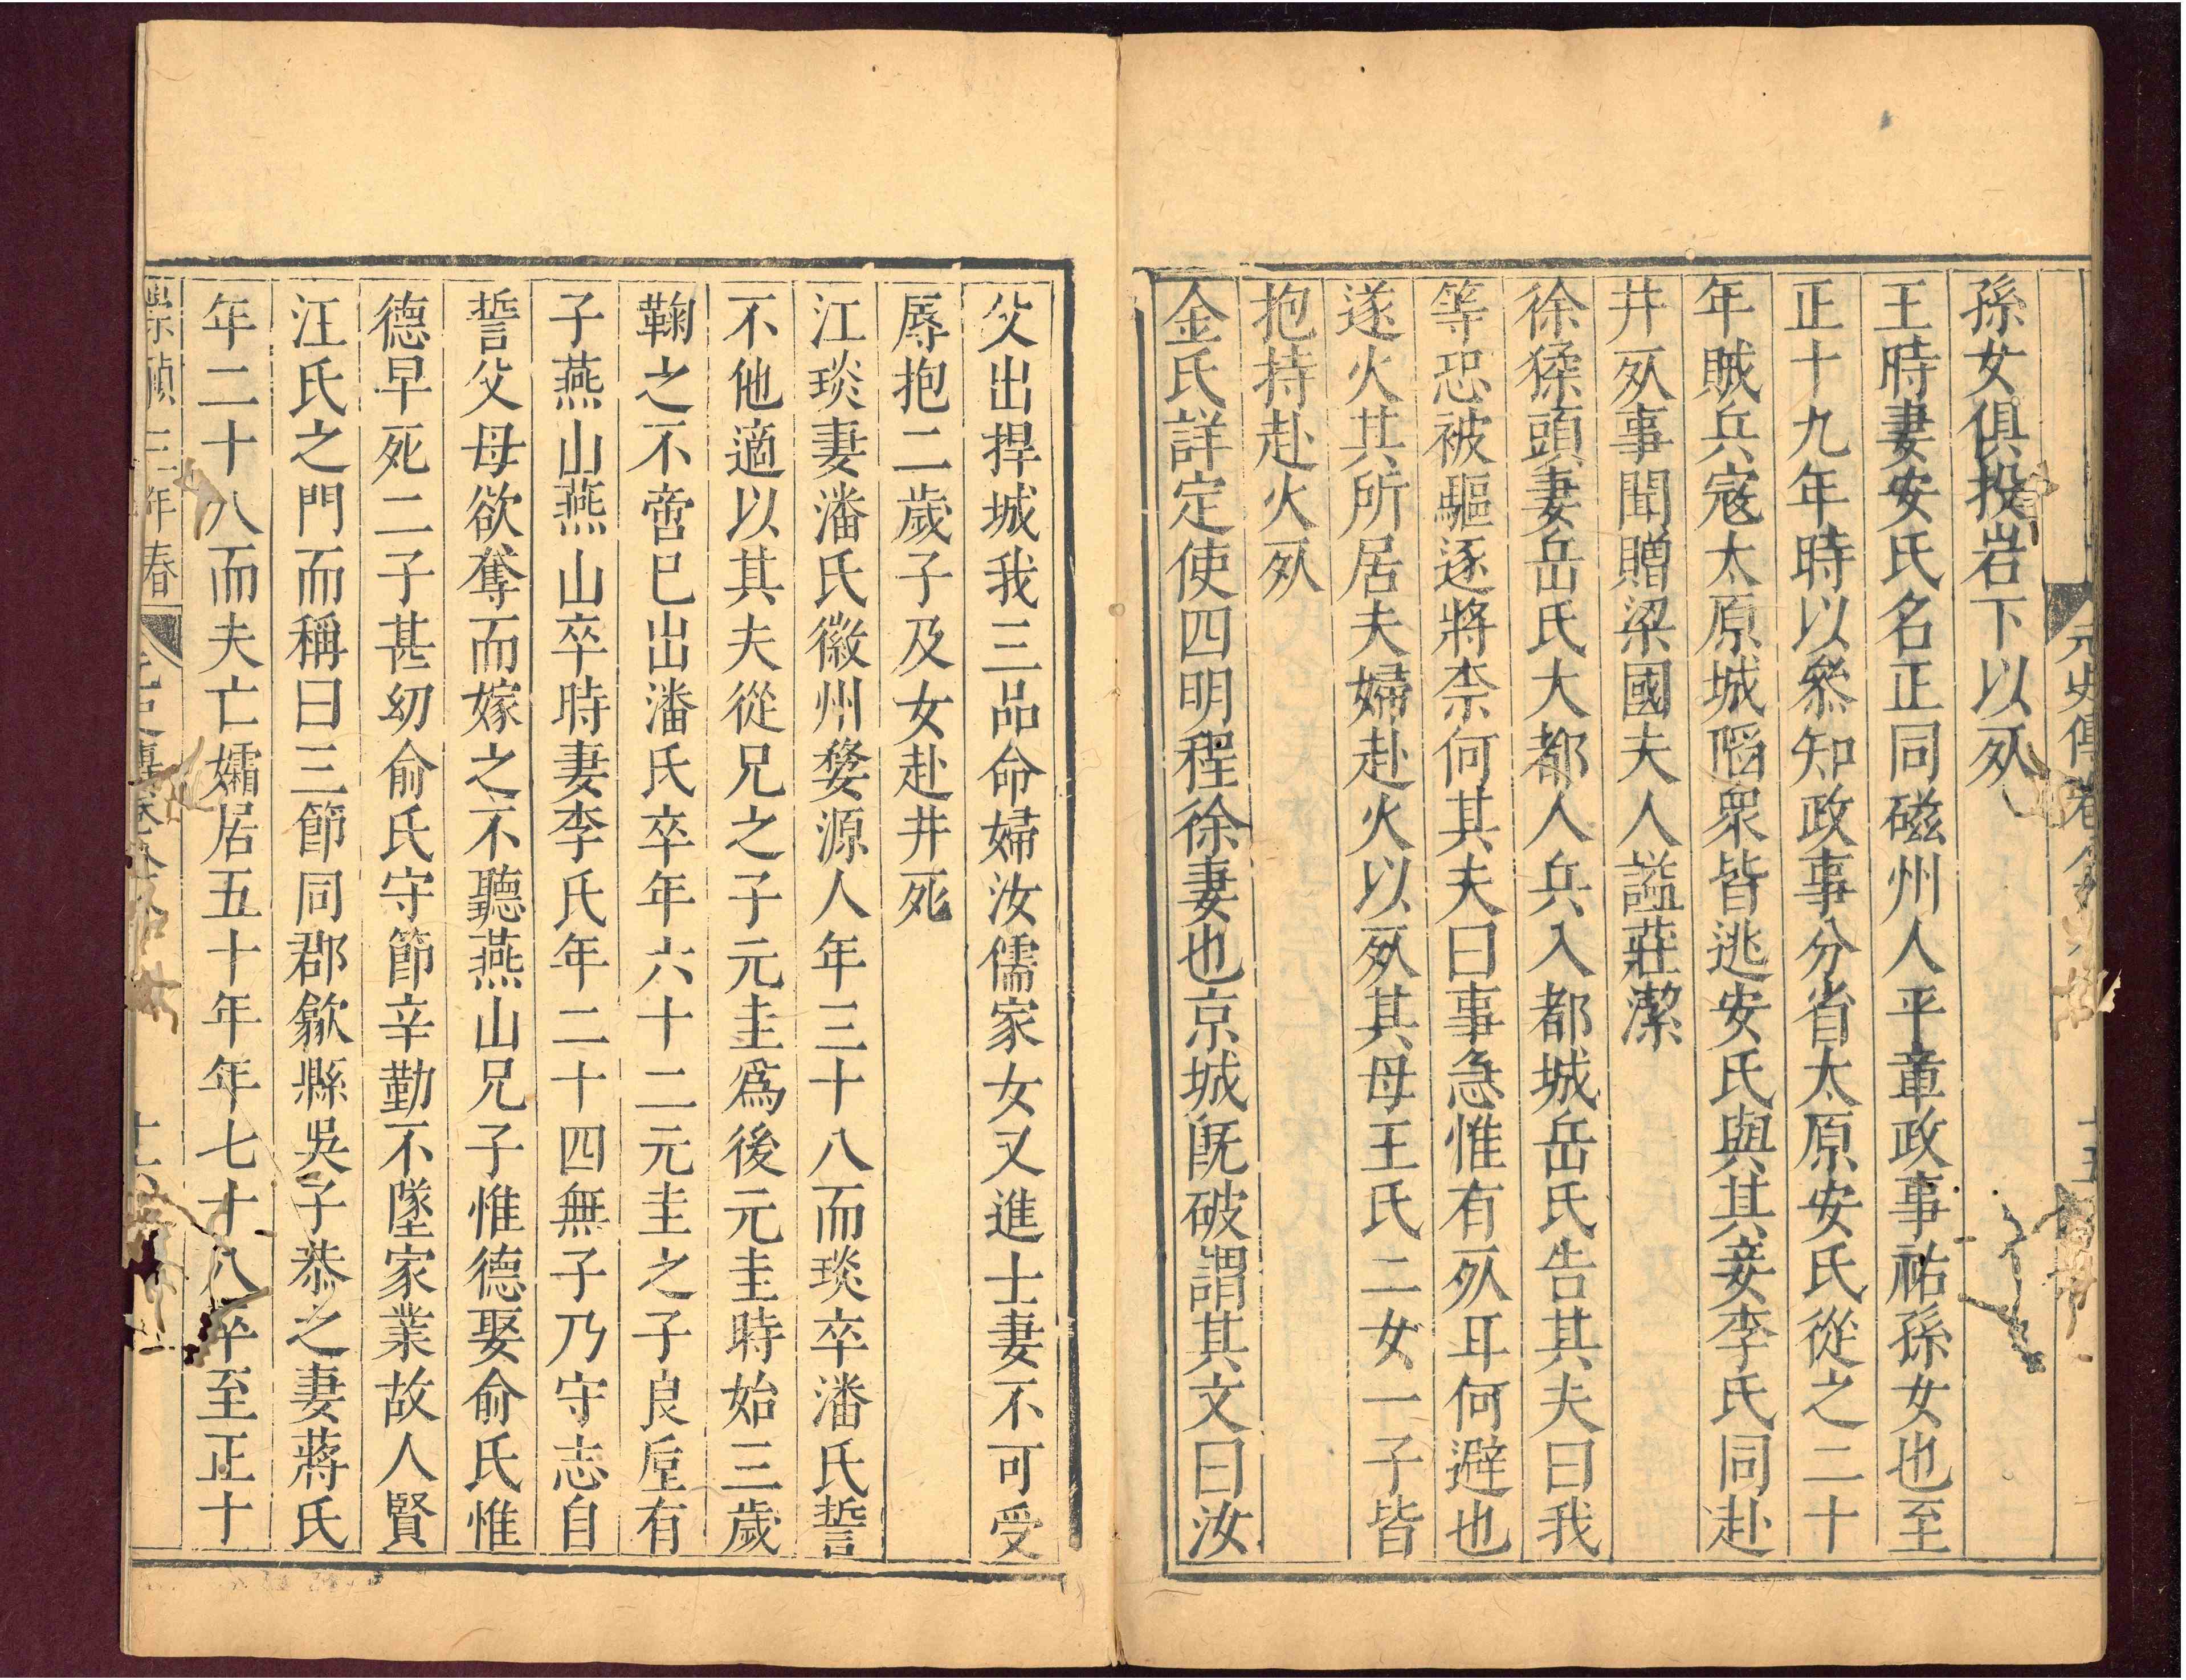 元史傳卷
孫女俱投岩下以死
王時妻安氏名正同磁州人平章政事祐孫女也至
正十九年時以叅知政事分省太原安氏從之二十
年賊兵寇太原城陷衆皆逃安氏與其妾李氏同赴
井死事聞贈梁國夫人謚莊潔
徐猱頭妻岳氏大都人兵入都城岳氏告其夫曰我
等恐被驅逐將柰何其夫曰事急惟有死耳何避也
遂火其所居夫婦赴火以死其母王氏二女一子皆
抱持赴火死
金氏詳定使四明程徐妻也京城旣破謂其文曰汝
父出捍城我三品命婦汝儒家女又進士妻不可受
辱抱二歲子及女赴井死
江琰妻潘氏徽州婺源人年三十八而琰卒潘氏誓
不他適以其夫從兄之子元圭爲後元圭時始三歲
鞠之不啻已出潘氏卒年六十二元圭之子良垕有
子燕山燕山卒時妻李氏年二十四無子乃守志自
誓父母欲奪而嫁之不聽燕山兄子惟德娶俞氏惟
德早死二子甚幼俞氏守節辛勤不墜家業故人賢
汪氏之門而稱曰三節同郡歙縣吳子恭之妻蔣氏
年二十八而夫亡孀居五十年年七十八卒至正十
崇禎三年春